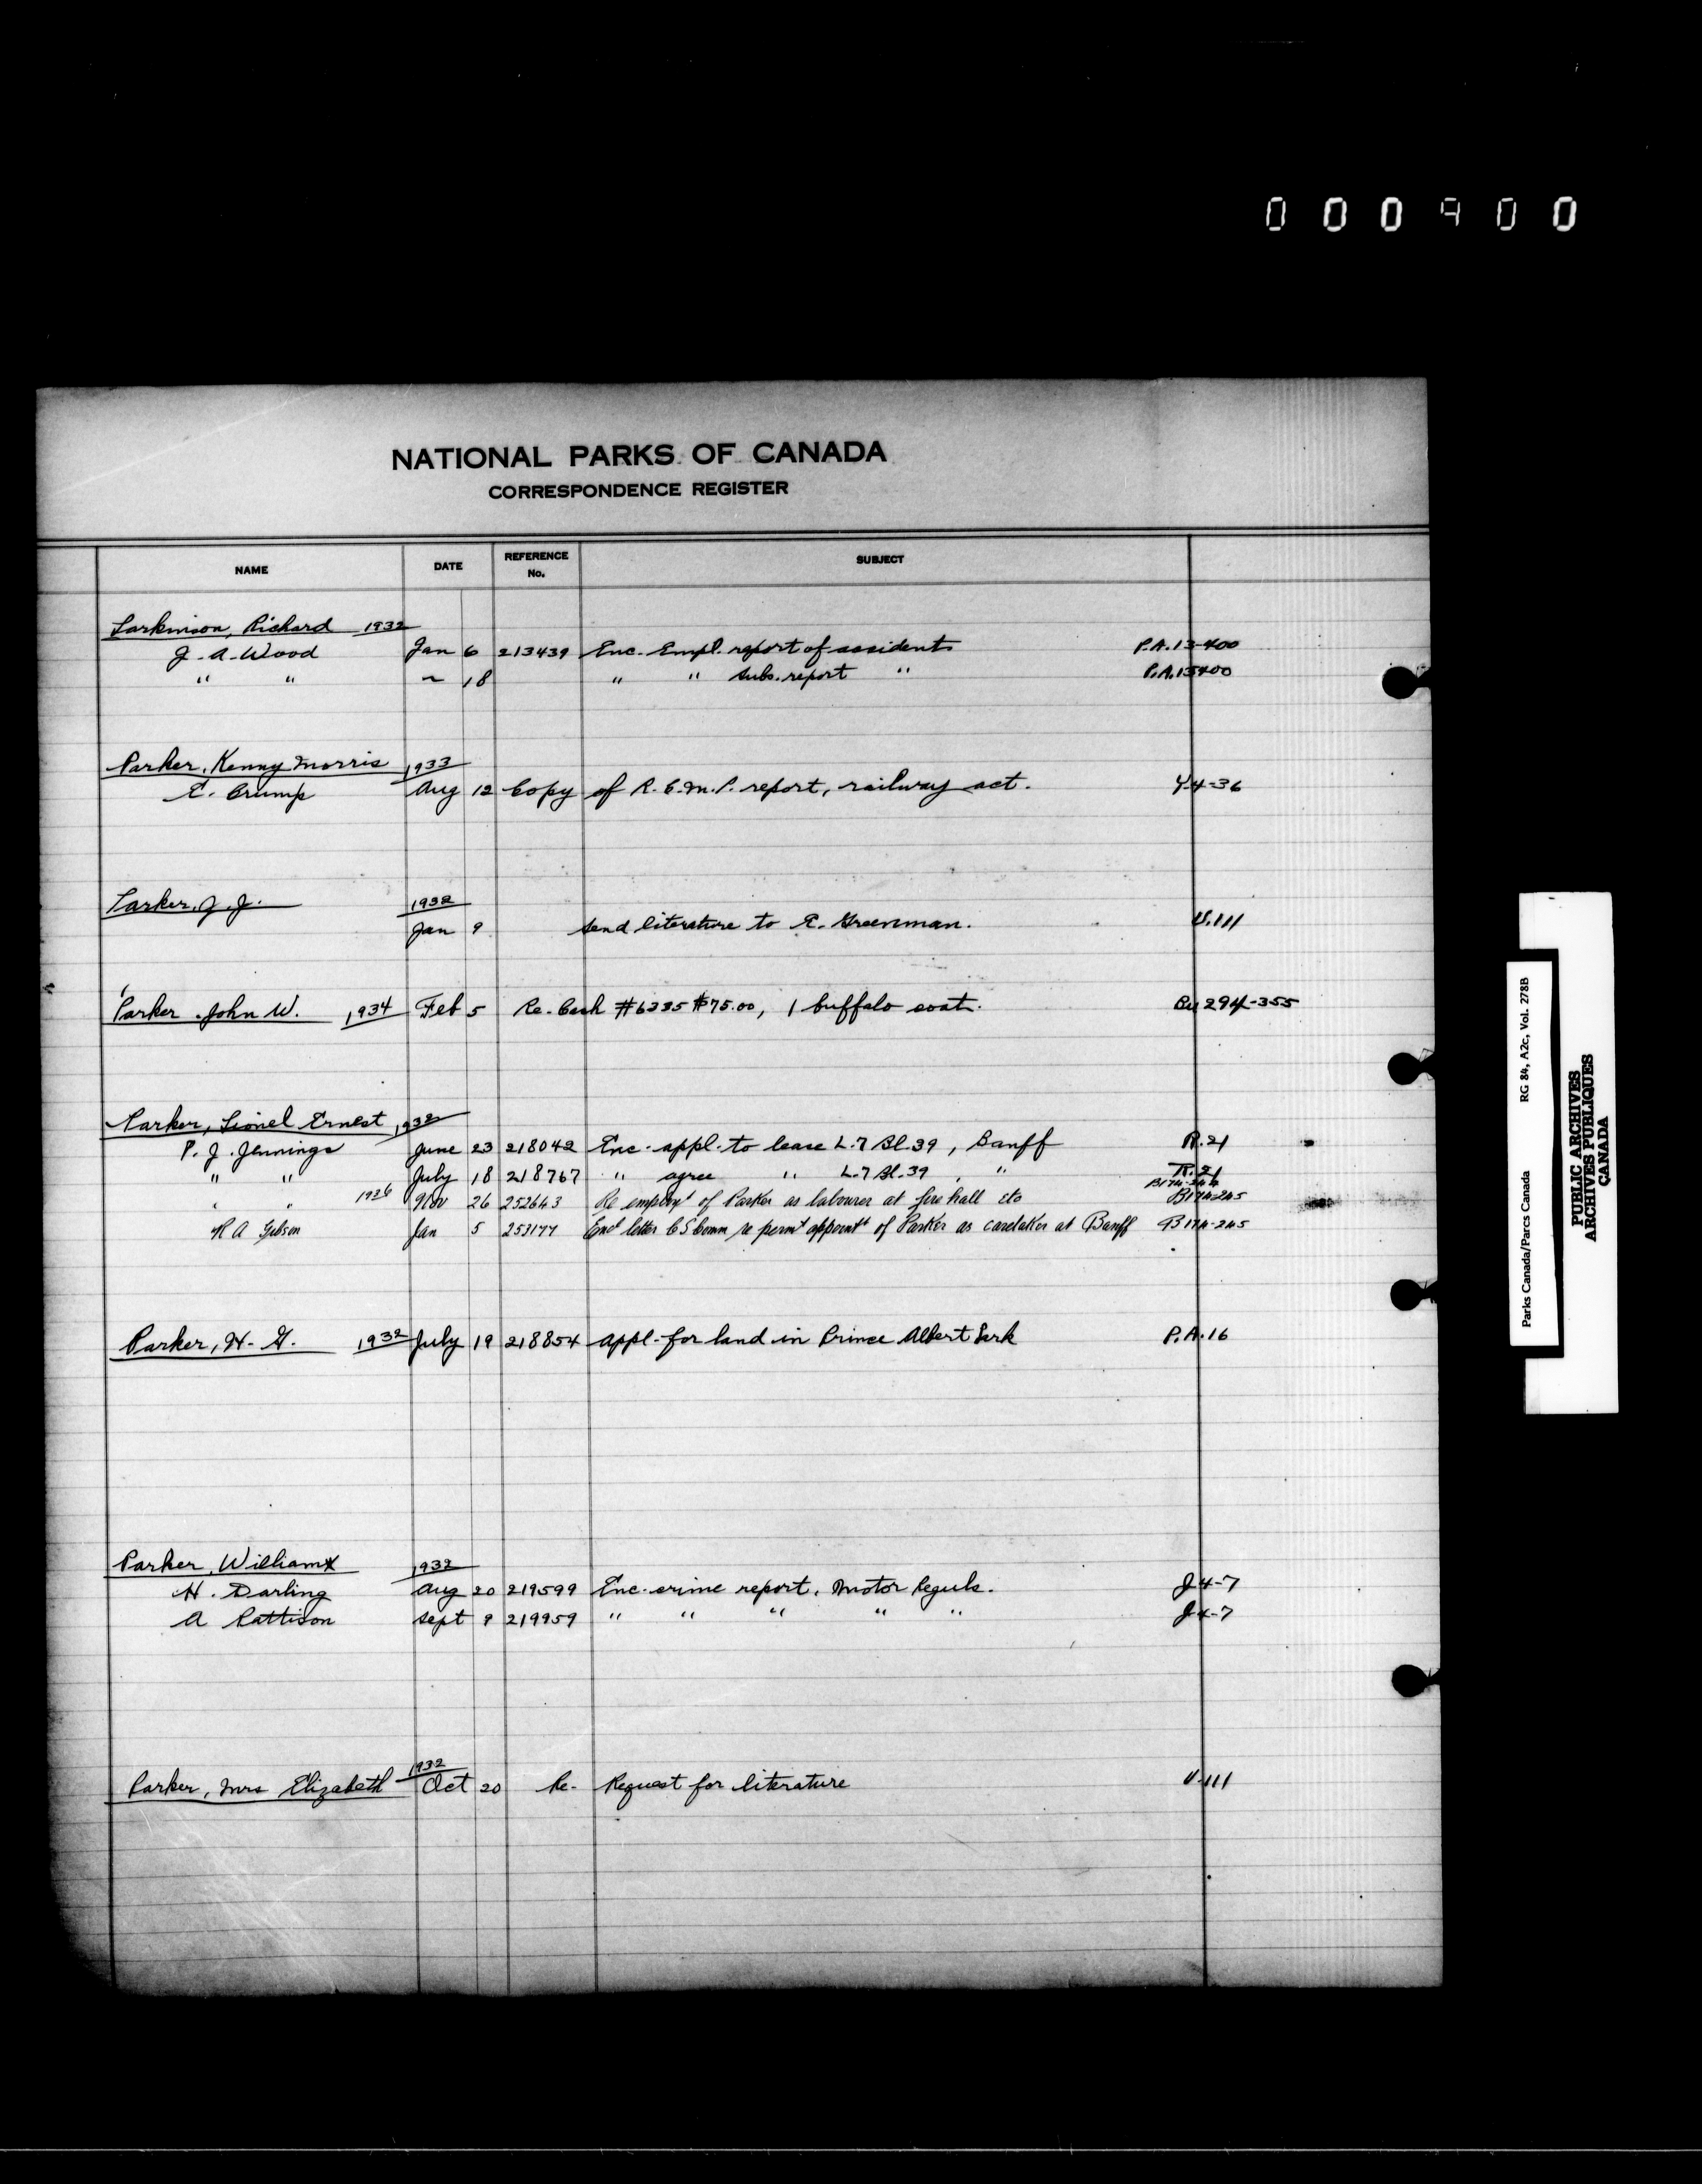 000900
NATIONAL PARKS OF CANADA
CORRESPONDENCE REGISTER
NAME DATE REFERENCE No. SUBJECT
Parkinson, Richard 1932
J. A. Wood Jan 6 213439 Enc. Empl. report of accident P.A.13-400
" " " 18 " " Subs. report " P.A.13-400
Parker, Kenny Morris 1933
E. Crump Aug 12 Copy of R.C.M.P. report, railway act. Y4-36
Parker, J. J. 1932
Jan 9 Send literature to E. Greenman. U.111
Parker, John W. 1934 Feb 5 Re. Cash #6335 $75.00, 1 buffalo coat. Bu 294-355
Parker, Lionel Ernest 1932
P. J. Jennings June 23 218042 Enc. appl. to lease L.7 Bl.39, Banff R.21
" " July 18 218767 " agree " L.7 Bl.39, " R.21
" " 1936 Nov 26 252643 Re employt of Parker as labourer at fire hall etc B174-245
R A Gibson Jan 5 253177 Encl letter C S Comm re permt appointt of Parker as caretaker at Banff B174-245
Parker, H. G. 1932 July 19 218854 Appl. for land in Prince Albert Park P.A.16
Parker, William 1932
H. Darling Aug 20 219599 Enc. crime report. Motor Reguls. J4-7
A Pattison Sept 9 219959 " " " " " J4-7
Parker, Mrs Elizabeth 1932 Oct 20 Re- Request for literature U.111
Parks Canada/Parcs Canada RG 84, A2c, Vol. 278B
PUBLIC ARCHIVES
ARCHIVES PUBLIQUES
CANADA